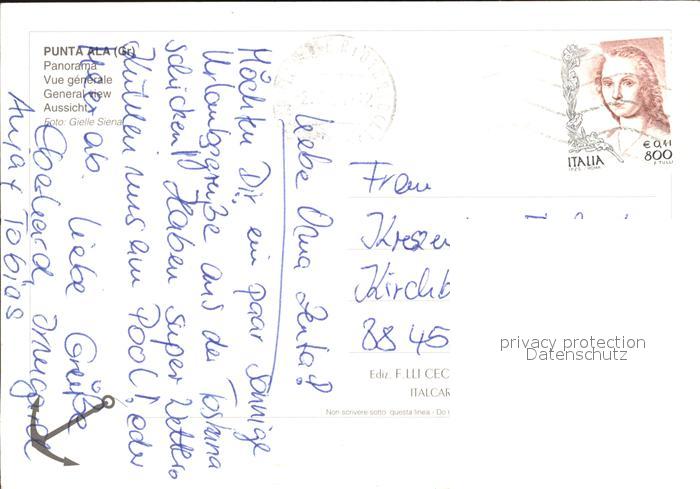 PUNTA ALA (Gr)
Panorama
Vue générale
General view
Aussicht
Foto: Gielle Siena
Liebe Oma Zenta!
Möchten Dir ein paar sonnige
Urlaubsgrüße aus der Toskana
schicken! Haben super Wetter,
kühlen uns am Pool! oder
Meer ab. Liebe Grüße
Eberhard, Irmgard
Anja + Tobias
ITALIA
€ 0,41
800
Frau
Kreszen
Kirchb
8845
privacy protection
Datenschutz
Ediz. F.LLI CEC
ITALCAR
Non scrivere sotto questa linea - Do